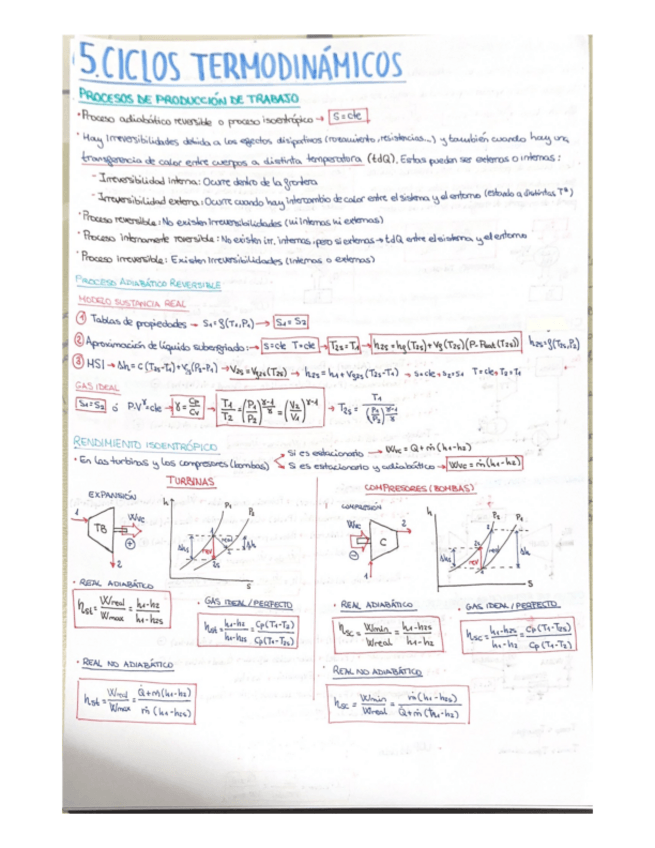 5.CICLOS TERMODINÁMICOS
PROCESOS DE PRODUCCIÓN DE TRABAJO
• Proceso adiabático reversible o proceso isoentrópico → S=cte
• Hay Irreversibilidades debida a los efectos disipativos (rozamiento, resistencias...) y también cuando hay una
transferencia de calor entre cuerpos a distinta temperatura (tdQ). Estas pueden ser externas o internas:
- Irreversibilidad Interna: Ocurre dentro de la frontera
- Irreversibilidad externa: Ocurre cuando hay intercambio de calor entre el sistema y el entorno (Estando a distintas Tª)
• Proceso reversible: No existen Irreversibilidades (ni internas ni externas)
• Proceso internamente reversible: No existen irr. internas, pero si externas → tdQ entre el sistema y el entorno
• Proceso Irreversible: Existen Irreversibilidades (internas o externas)
PROCESO ADIABÁTICO REVERSIBLE
MODELO SUSTANCIA REAL
① Tablas de propiedades → S1=f(T1,P1) → S1=S2
② Aproximación de líquido subenfriado: → S=cte T=cte → T2s=T1 → h2s=hf(T2s)+vf(T2s)(P-Psat(T2s)) h2s=f(T2s,P2)
③ HSI → Δh=c(T2s-T1)+Vf(P2-P1)
GAS IDEAL
S1=S2 ó P.V^γ=cte → γ=Cp/Cv → T1/T2=(P1/P2)^(γ-1/γ)=(V2/V1)^(γ-1) → T2s= T1/(P1/P2)^(γ-1/γ)
RENDIMIENTO ISOENTRÓPICO
• En las turbinas y los compresores (bombas)
Si es estacionario → Wvc=Q+ṁ(h1-h2)
Si es estacionario y adiabático → Wvc=ṁ(h1-h2)
TURBINAS
COMPRESORES (BOMBAS)
EXPANSIÓN
COMPRESIÓN
1 TB Wvc + 2
h P1 P2 Δhs rev Δh 2s s
Wvc - C 2 1
h P2 P1 Δhs rev Δh s
• REAL ADIABÁTICO
ηst=Wreal/Wmax=h1-h2/h1-h2s
• GAS IDEAL/PERFECTO
ηst=h1-h2/h1-h2s=Cp(T1-T2)/Cp(T1-T2s)
• REAL ADIABÁTICO
ηsc=Wmin/Wreal=h1-h2s/h1-h2
• GAS IDEAL/PERFECTO
ηsc=h1-h2s/h1-h2=Cp(T1-T2s)/Cp(T1-T2)
• REAL NO ADIABÁTICO
ηst=Wreal/Wmax=Q̇+ṁ(h1-h2)/ṁ(h1-h2s)
• REAL NO ADIABÁTICO
ηsc=Wmin/Wreal=ṁ(h1-h2s)/Q̇+ṁ(h1-h2)